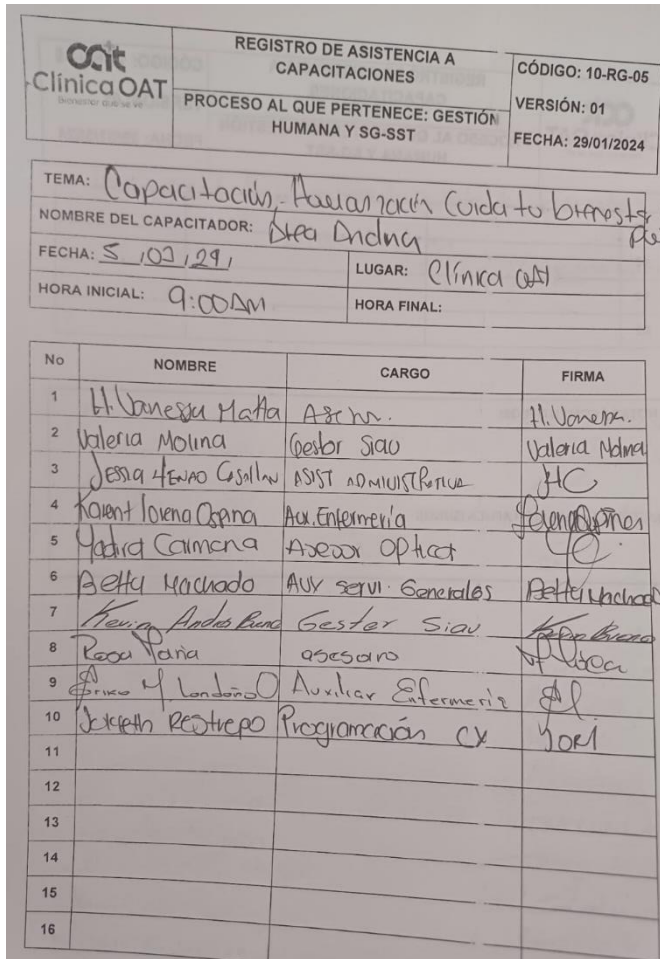 oait
Clínica OAT
REGISTRO DE ASISTENCIA A
CAPACITACIONES
PROCESO AL QUE PERTENECE: GESTIÓN
HUMANA Y SG-SST
CÓDIGO: 10-RG-05
VERSIÓN: 01
FECHA: 29/01/2024
TEMA: Capacitación, Cuida tu
NOMBRE DEL CAPACITADOR: Area Andina
FECHA: 5
LUGAR: Clínica OAT
HORA INICIAL: 9:00AM
HORA FINAL:
No NOMBRE CARGO FIRMA
1 H. Vanessa Matta H. Vanessa.
2 Valeria Molina Gestor Siau Valeria Molina
3 HENAO ASIST ADMINISTRATIVA JHC
4 Karent lorena Ospina Aux. Enfermería
5 Yadira Carmona Asesor Optica
6 Betty Machado AUX servi. Generales Betty Machado
7 Kevin Andres Gestor Siau Kevin
8 Rosa Maria asesora
9 M Londoño O Auxiliar Enfermeria
10 Restrepo Programación CX
11
12
13
14
15
16